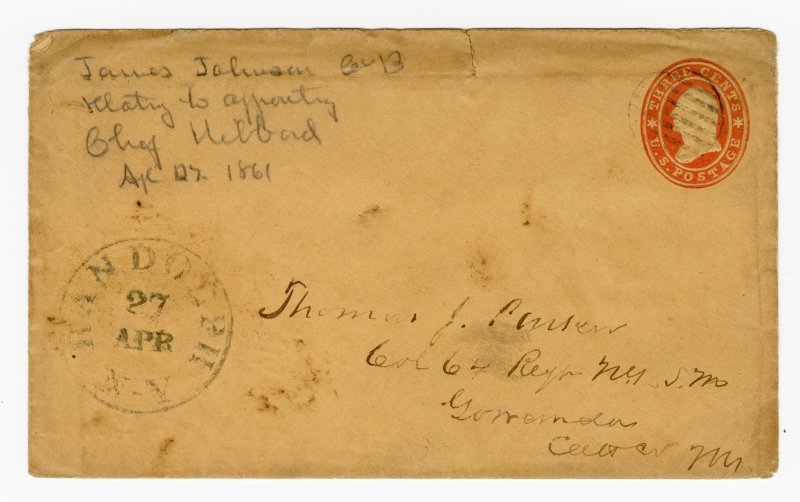 James Johnson Co B
relatig to appointg
Chap Hibbard
Ap 27. 1861
THREE CENTS
U.S. POSTAGE
RANDOLPH
27
APR
N-Y
Thomas J. Parker
Col 64 Regt NY S.M
Gowanda
Catt Co NY